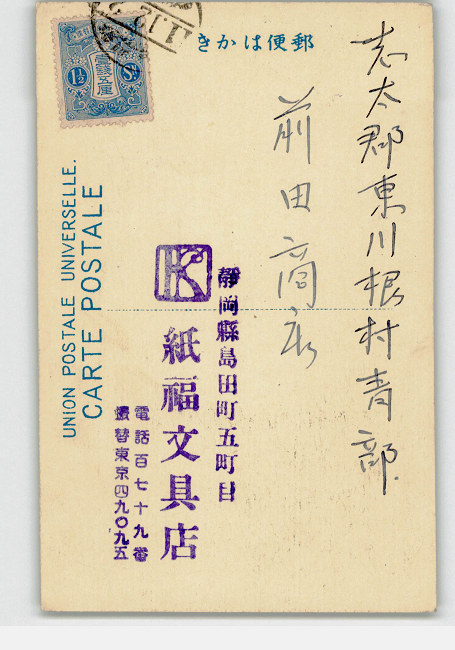 郵便はかき
志太郡東川根村青部
前田商店
静岡縣島田町五丁目
紙福文具店
電話百七十九番
振替東京四九〇九五
K
UNION POSTALE UNIVERSELLE.
CARTE POSTALE
壹錢五厘
1½ Sn